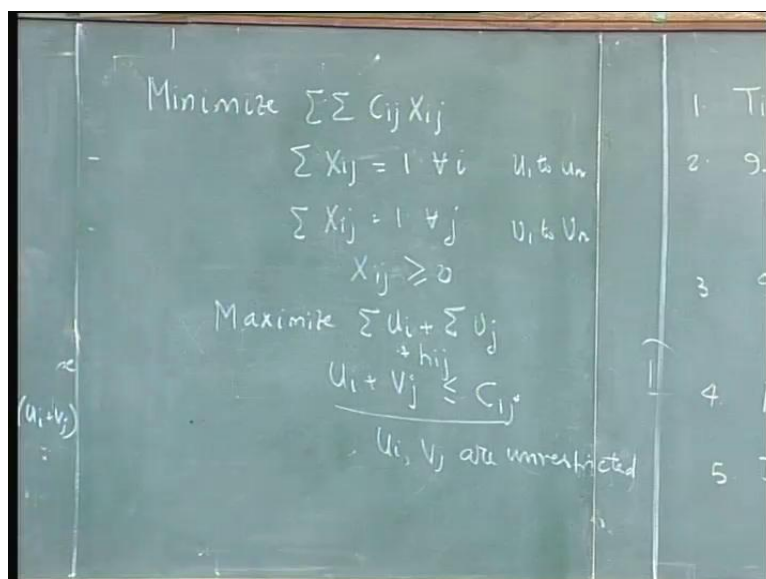 Minimize ΣΣ Cij Xij
Σ Xij = 1 ∀ i u1 to un
Σ Xij = 1 ∀ j v1 to vn
Xij ≥ 0
Maximize Σ ui + Σ vj
+ hij
ui + vj ≤ Cij
ui, vj are unrestricted
(ui+vj)
1. Ti
2. 9.
3
4.
5